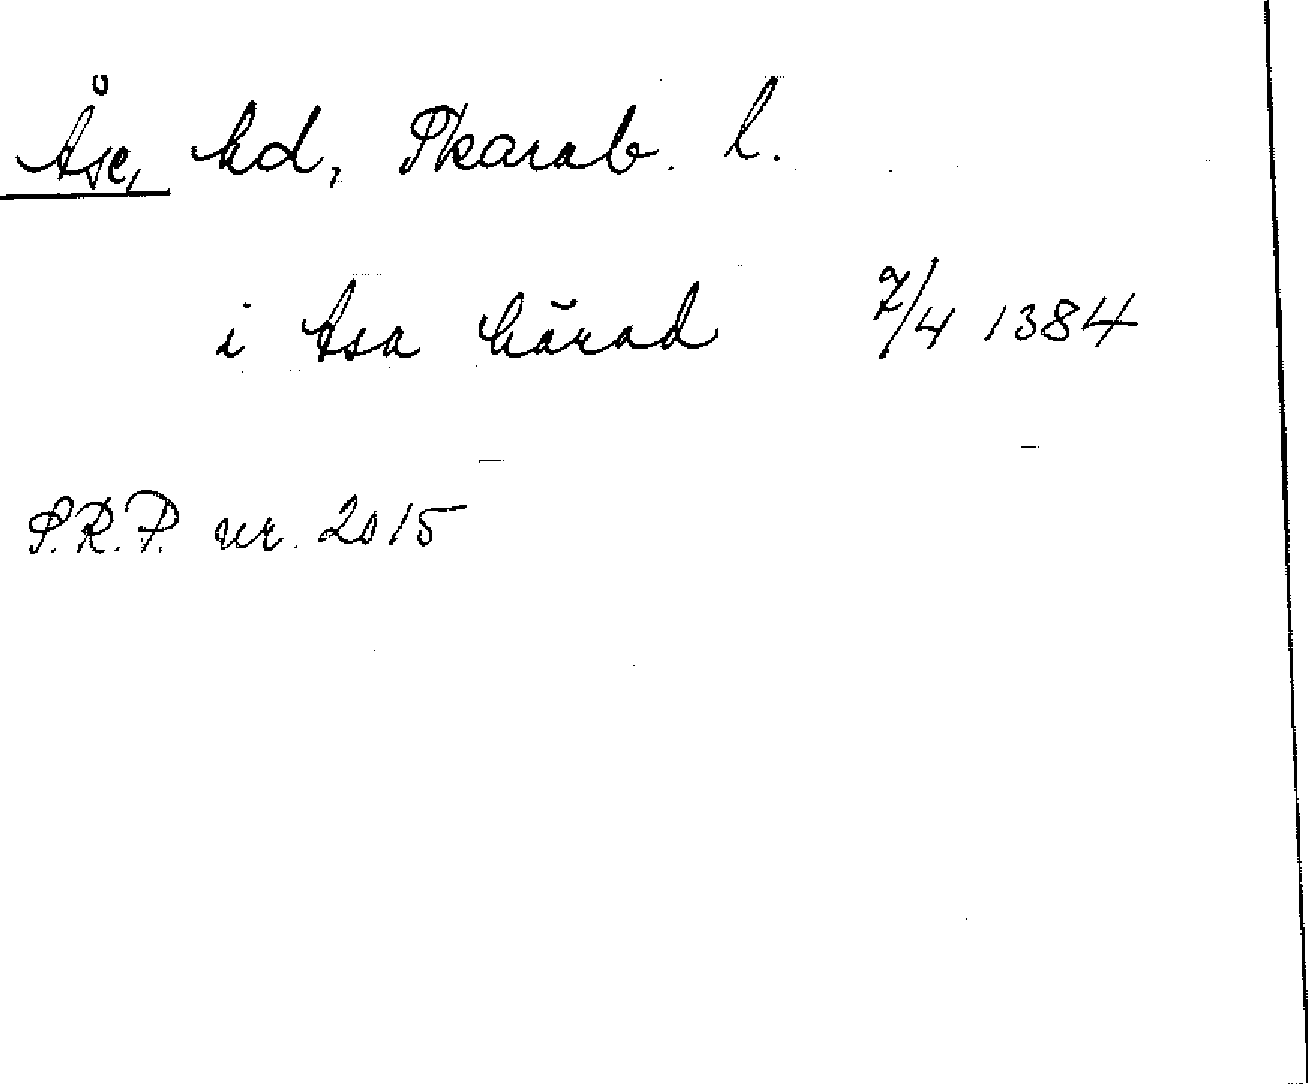 Åse, hd, Skarab. l.
i Asa härad 7/4 1384
S.R.P. nr. 2015